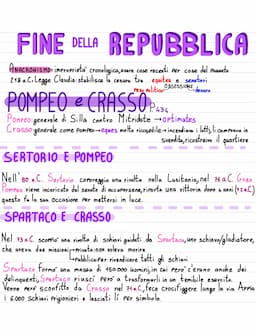 FINE DELLA REPUBBLICA
ANACRONISMO: improprietà cronologica, usare cose recenti per cose del passato
218 a.C. Legge Claudia: stabilisce la cesura tra equites e senatori
OSSESSIONE
POMPEO e CRASSO P.434
POMPEO generale di Silla contro Mitridate → ortimates
Crasso generale come pompeo → eques molto ricco → incendiava i lotti, li comprava in
svendita, ricostruiva il quartiere
SERTORIO E POMPEO
Nell' 80 a.C. Sertorio capeggia una rivolta nella Lusitania, nel 76 a.C. Gneo
Pompeo viene incaricato dal senato di occuparsene, riporta una vittoria dopo 4 anni (72 a.C.)
questa fu la sua occasione per mettersi in luce.
SPARTACO E CRASSO
Nel 73 a.C. scoppia una rivolta di schiavi guidati da Spartaco, uno schiavo/gladiatore,
che aveva due missioni → rivista con voleva morire
→ pubblica per rivendicare tutti gli schiavi
Spartaco forma una massa di 150 000 uomini, in cui però c'erano anche dei
delinquenti, Spartaco riuscì però a trasformarli in un temibile esercito.
Venne però sconfitto da Crasso nel 71 a.C., fece crocifiggere lungo la via Appia
i 6.000 schiavi prigionieri e lasciati lì per simbolo.